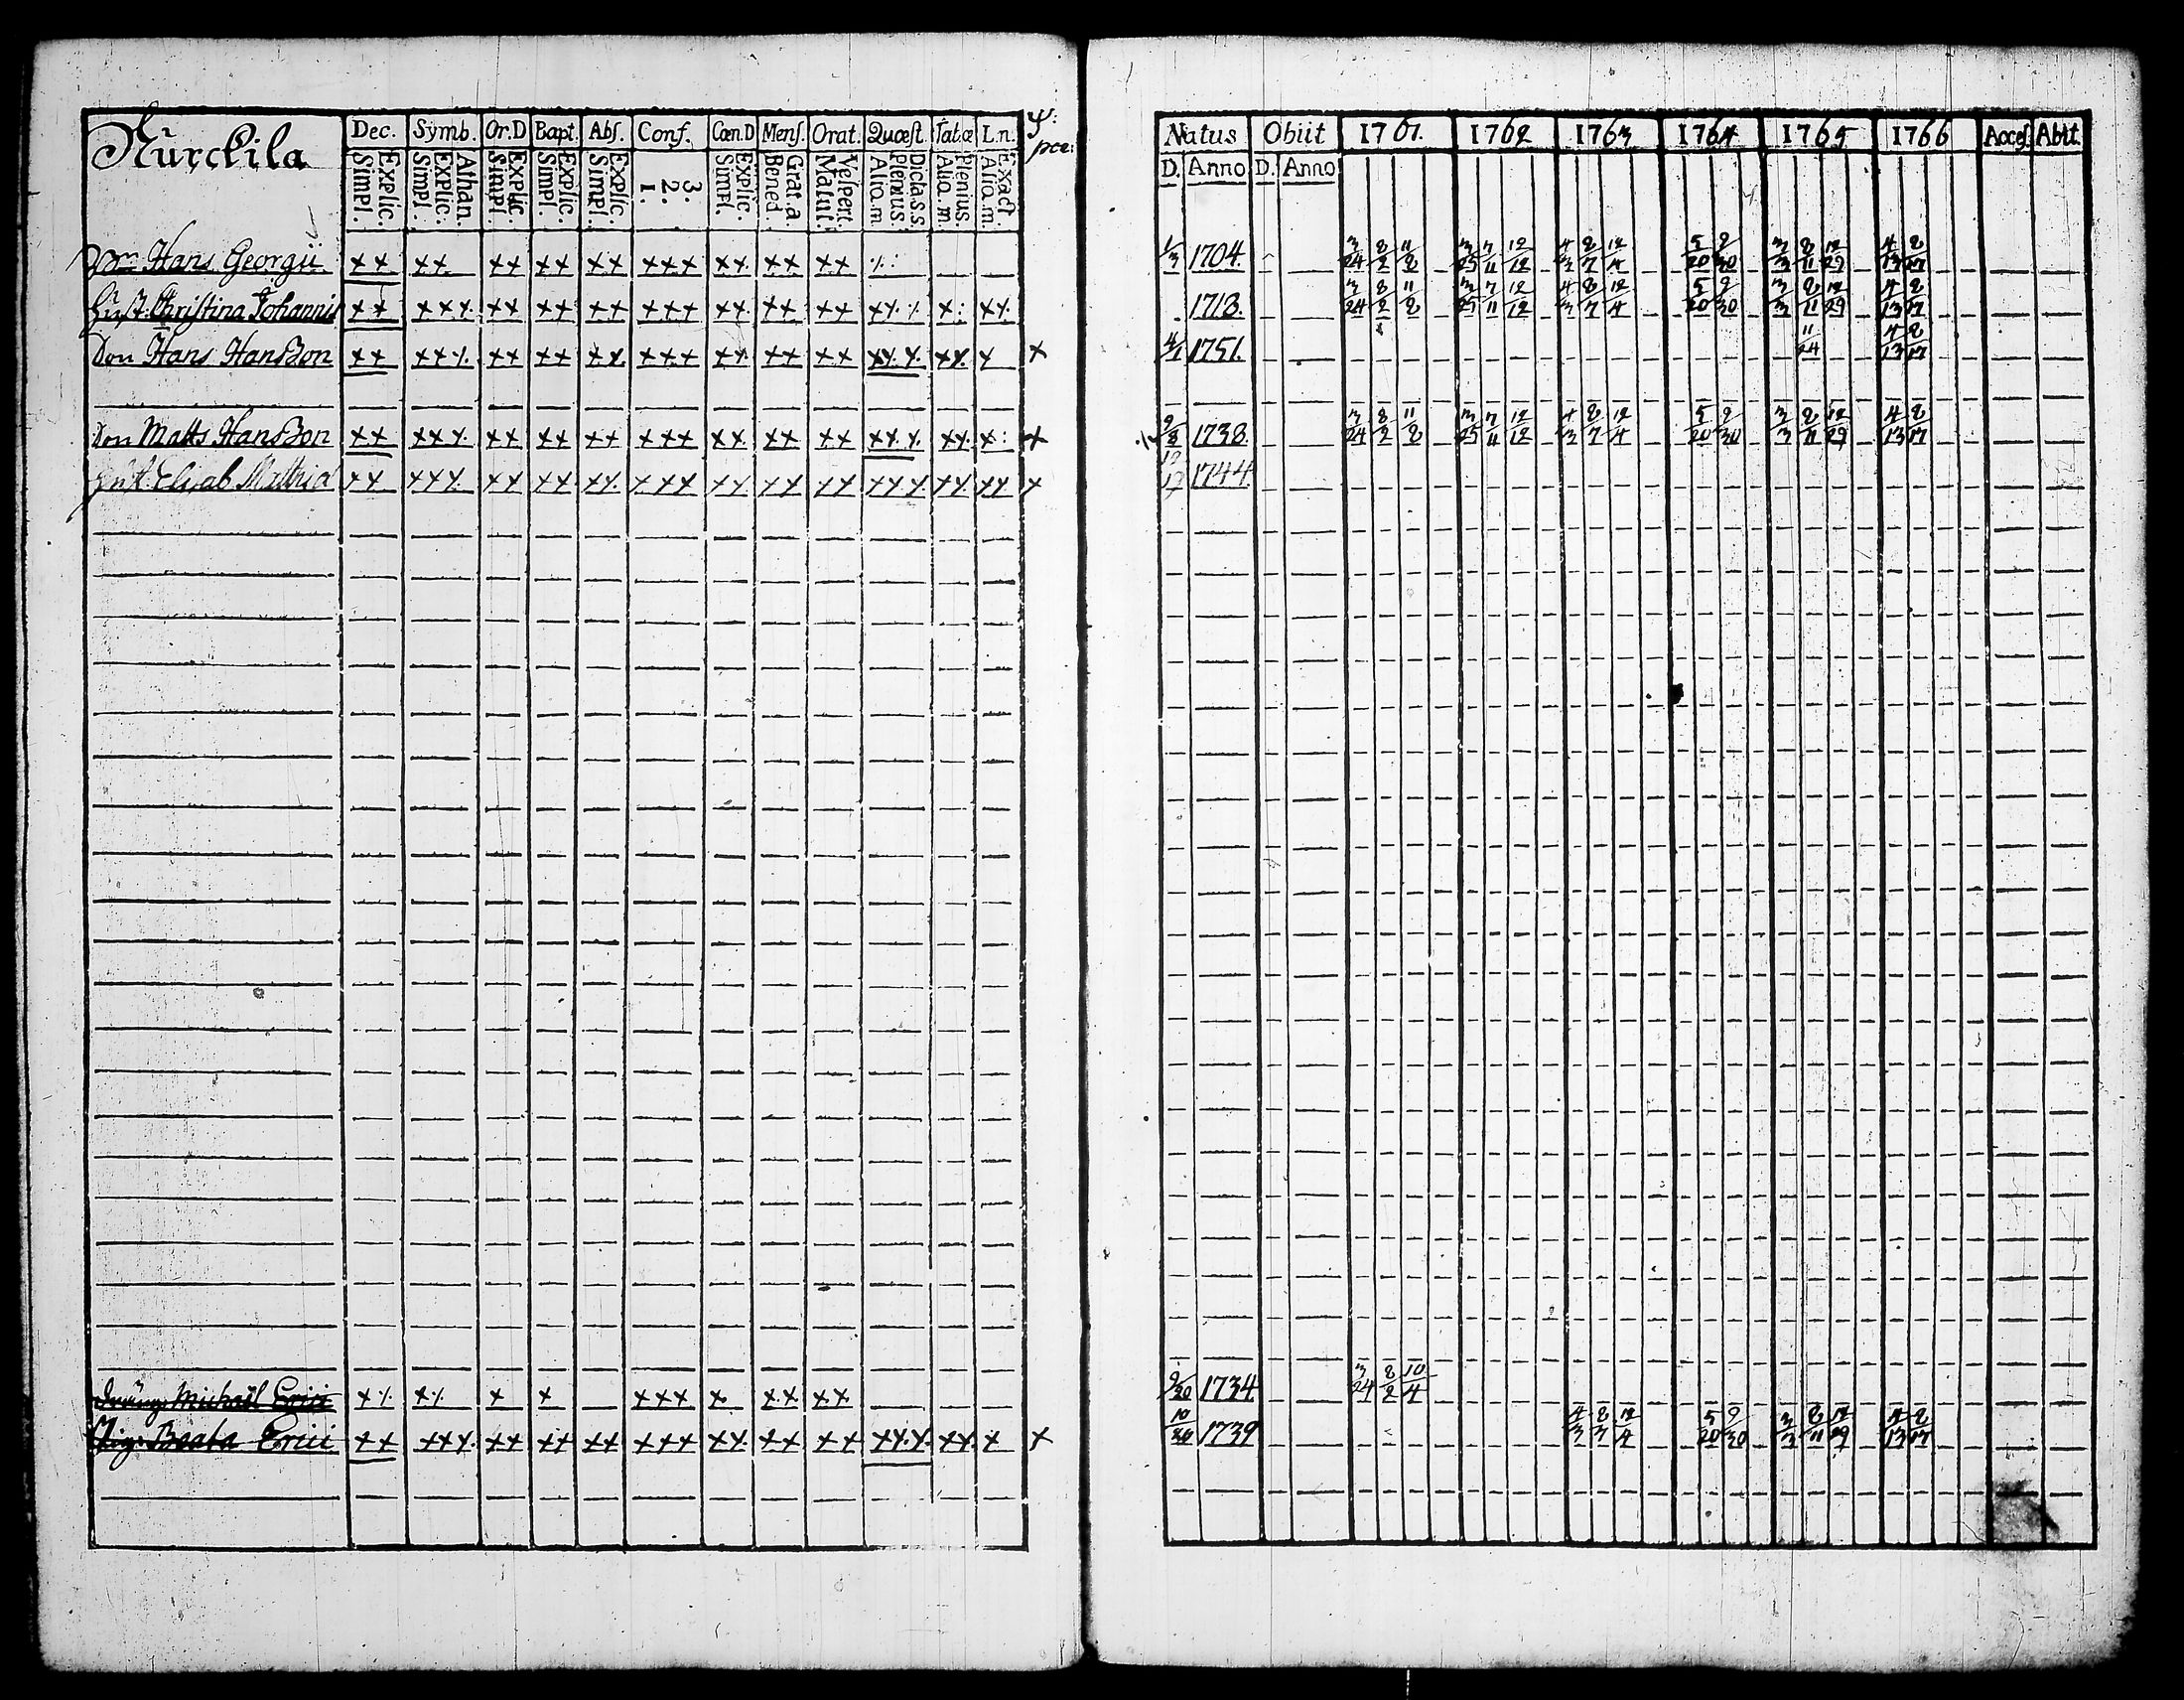 Nurckila Dec. Symb. Or.D Bapt. Abs. Conf. Cœn.D Mens. Orat. Quæst. Tab.œ L.n. ps: pœ:
Explic. Simpl. Athan. Explic. Simpl. Explic. Simpl. Explic. Simpl. Explic. Simpl. 3. 2. 1. Explic. Simpl. Grat.a Bened. Vespert. Matut. Dicta.s.s. Plenius. Alio.m Plenius. Alio.m. Exact Alio.m.
Hans Georgii xx xx xx xx xx xxx xx xx xx
Hust. Christina Johannis xx xxx xx xx xx xxx xx xx xx xx x: xx
Son Hans Hansson xx xxx xx xx xx xxx xx xx xx xxx xx x x
Son Matts Hansson xx xxx xx xx xx xxx xx xx xx xxx xx x: x
Hust. Elisab Matthiæ xx xxx xx xx xx xxx xx xx xx xxx xx xx x
Dräng Michaël Erici xx xx x x xxx x xx xx
Pig: Beata Erici xx xxx xx xx xx xxx xx xx xx xxx xx x x
Natus Obiit 1761. 1762 1763 1764 1765 1766 Acces. Abit.
D. Anno D. Anno
1/3 1704. 3/24 8/2 11/8 3/25 7/11 12/12 4/3 8/7 12/4 5/20 9/30 3/3 8/11 12/29 4/13 8/17
1718. 3/24 8/2 11/8 3/25 7/11 12/12 4/3 8/7 12/4 5/20 9/30 3/3 8/11 12/29 4/13 8/17
4/1 1751. 11/24 4/13 8/17
9/8 1738. 3/24 8/2 11/8 3/25 7/11 12/12 4/3 8/7 12/4 5/20 9/30 3/3 8/11 12/29 4/13 8/17
1744.
9/30 1734 3/24 8/2 10/4
10/30 1739 4/3 8/7 12/4 5/20 9/30 3/3 8/11 12/29 4/13 8/17